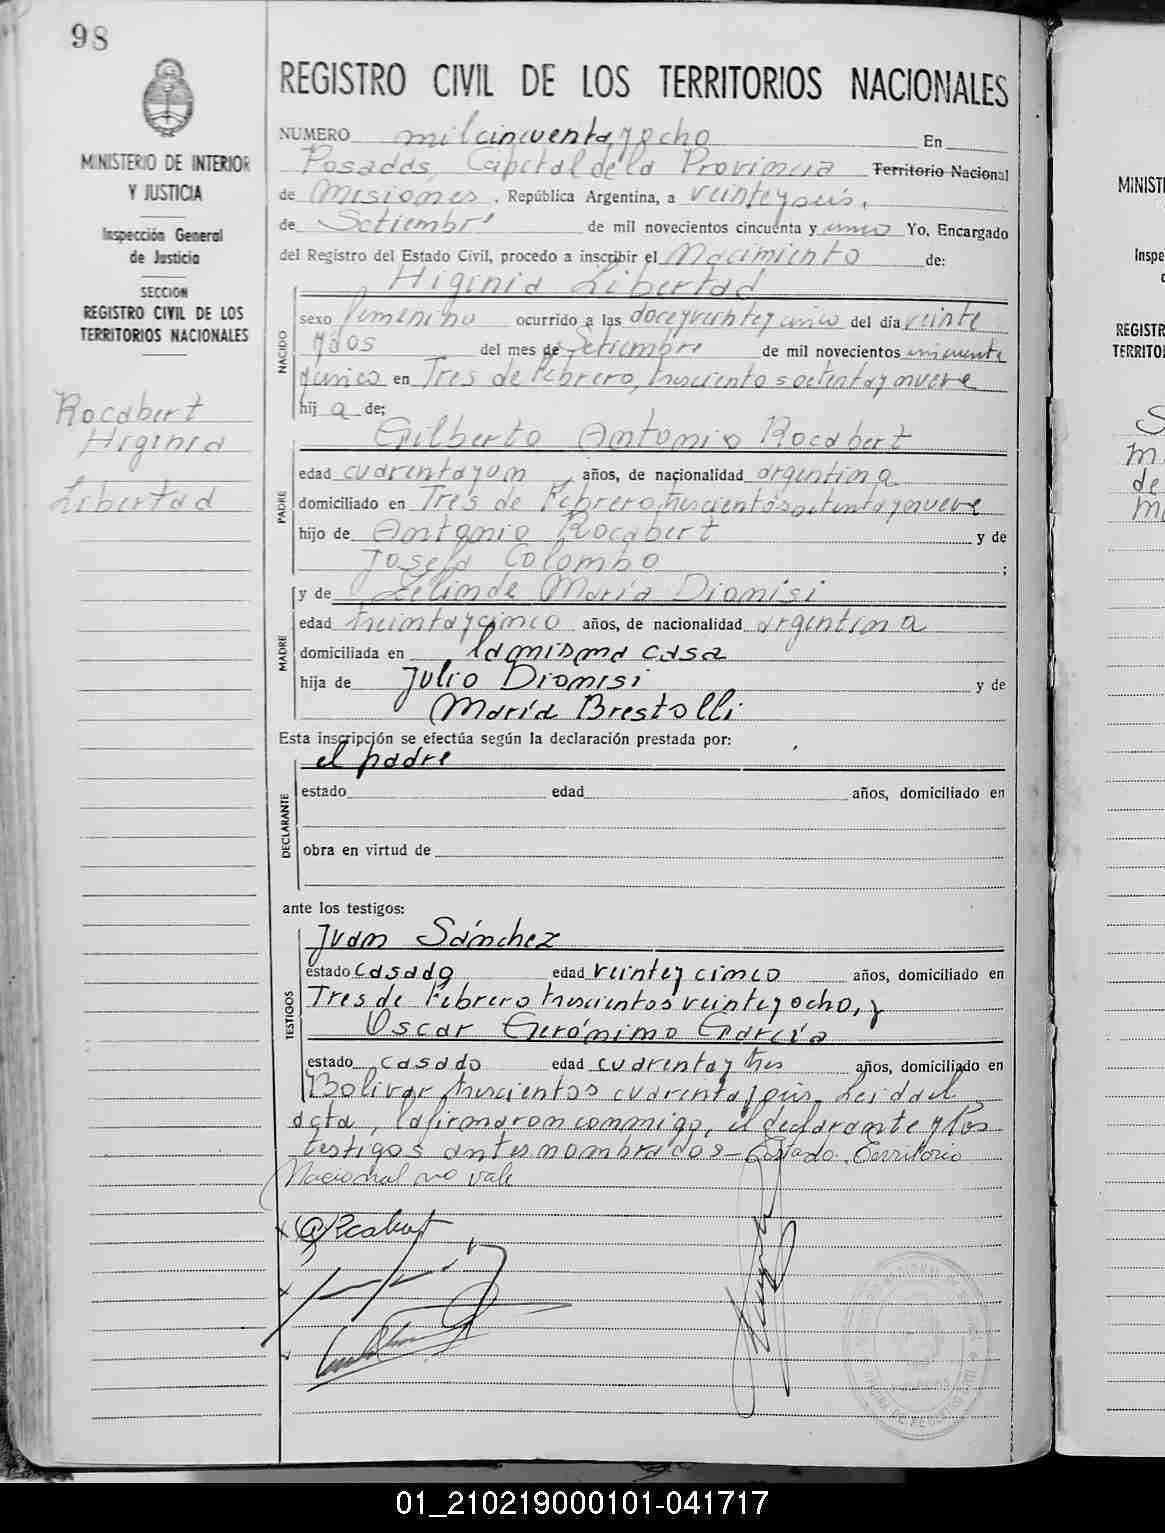 98
REGISTRO CIVIL DE LOS TERRITORIOS NACIONALES
MINISTERIO DE INTERIOR
Y JUSTICIA
Inspección General
de Justicia
SECCION
REGISTRO CIVIL DE LOS
TERRITORIOS NACIONALES
Rocabert
Higinia
Libertad
NUMERO mil cincuenta y ocho En
Posadas, Capital de la Provincia Territorio Nacional
de Misiones, República Argentina, a veinte y seis,
de Setiembre de mil novecientos cincuenta y uno Yo, Encargado
del Registro del Estado Civil, procedo a inscribir el Nacimiento de:
Higinia Libertad
NACIDO
sexo femenino ocurrido a las doce y veinte y cinco del día veinte
y dos del mes de Setiembre de mil novecientos cincuenta
y uno en Tres de Febrero, trescientos setenta y nueve
hija de:
Gilberto Antonio Rocabert
PADRE
edad cuarenta y un años, de nacionalidad argentina
domiciliado en Tres de Febrero trescientos setenta y nueve
hijo de Antonio Rocabert y de
Josefa Colombo;
y de Zelinde María Dionisi
MADRE
edad treinta y cinco años, de nacionalidad argentina
domiciliada en la misma casa
hija de Julio Dionisi y de
María Brestolli
Esta inscripción se efectúa según la declaración prestada por:
el padre
DECLARANTE
estado edad años, domiciliado en
obra en virtud de
ante los testigos:
Juan Sánchez
TESTIGOS
estado casado edad veinte y cinco años, domiciliado en
Tres de Febrero trescientos veinte y ocho, y
Oscar Gerónimo García
estado casado edad cuarenta y tres años, domiciliado en
Bolivar trescientos cuarenta y seis. Leida el
acta, la firmaron conmigo, el declarante y los
testigos antes nombrados - Testado: Territorio
Nacional no vale
MINIST
Inspe
REGISTR
TERRITO
01_210219000101-041717